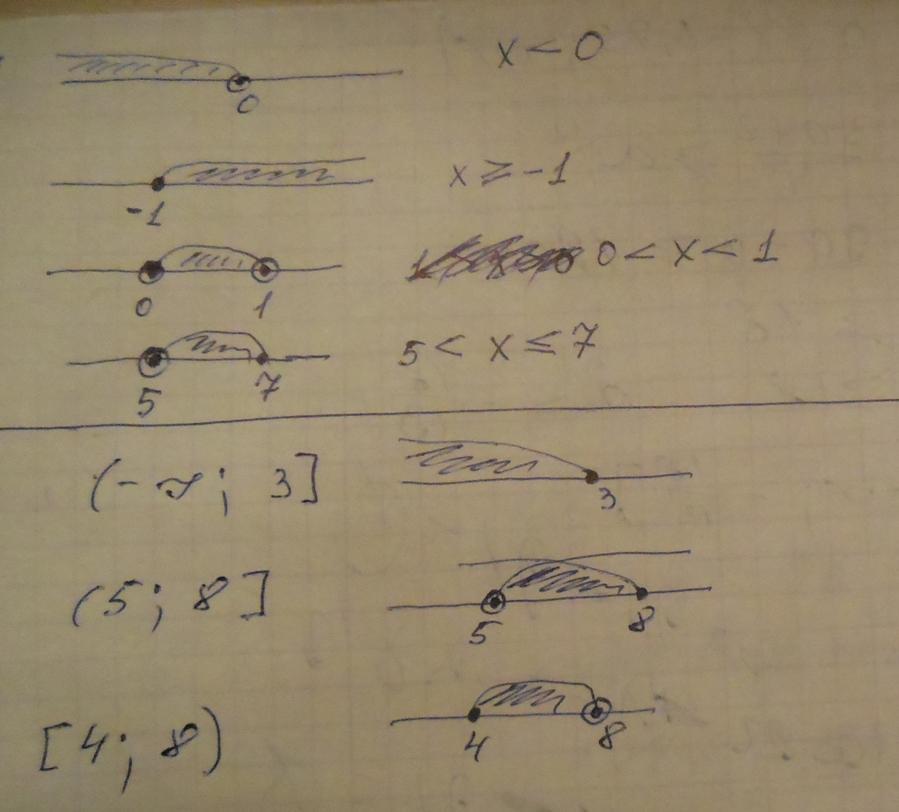 0 x < 0
-1 x ≥ -1
0 1 0 < x < 1
5 7 5 < x ≤ 7
(-∞; 3] 3
(5; 8] 5 8
[4; 8) 4 8